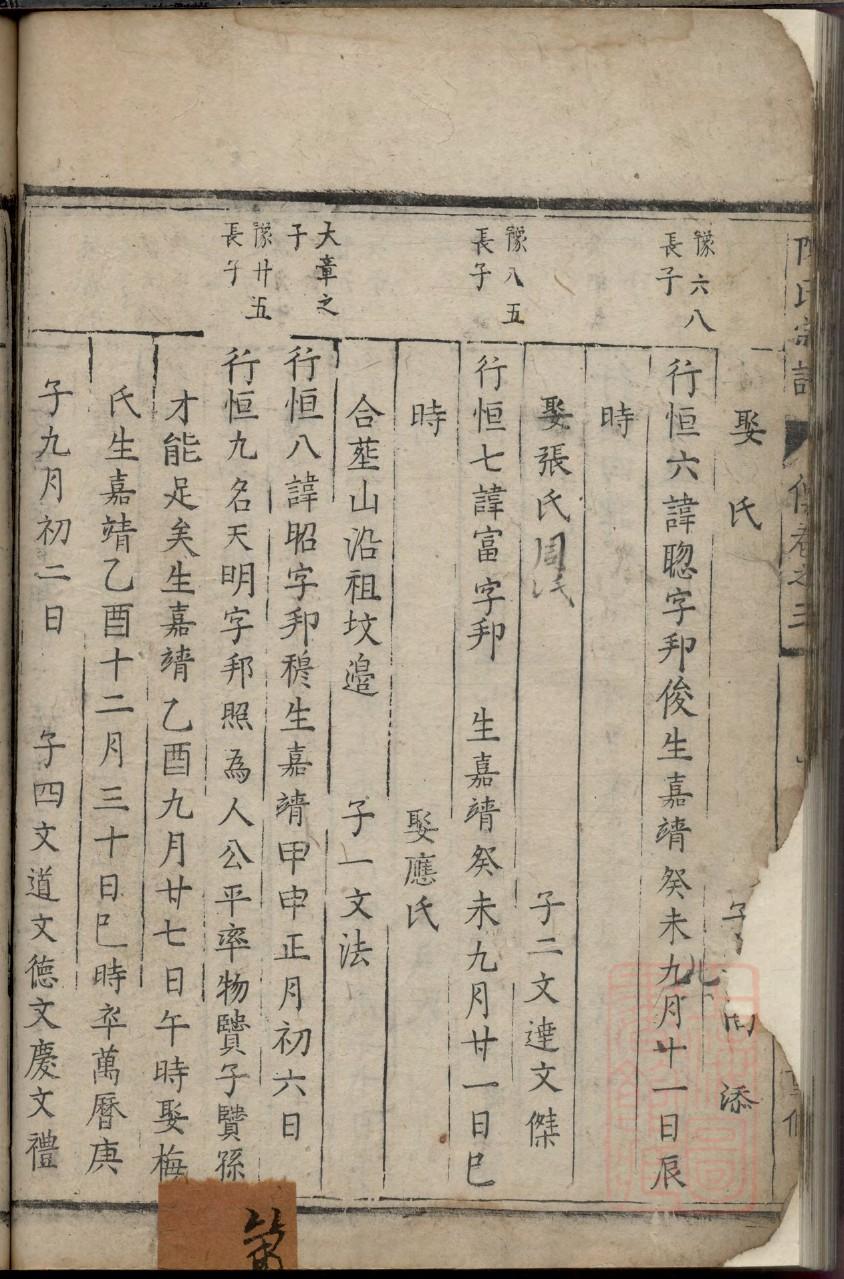 陳氏宗譜
傳卷之三
娶 氏
添
豫六八
長子
行恒六諱聰字邦俊生嘉靖癸未九月廿一日辰
時
娶張氏周氏 子二文達文傑
豫八五
長子
行恒七諱富字邦 生嘉靖癸未九月廿一日巳
時 娶應氏
合塟山沿祖坟邉 子一文法
大章之
子
行恒八諱昭字邦穆生嘉靖甲申正月初六日
豫廿五
長子
行恒九名天明字邦照為人公平率物贒子贒孫
才能足矣生嘉靖乙酉九月廿七日午時娶梅
氏生嘉靖乙酉十二月三十日巳時卒萬曆庚
子九月初二日 子四文道文德文慶文禮